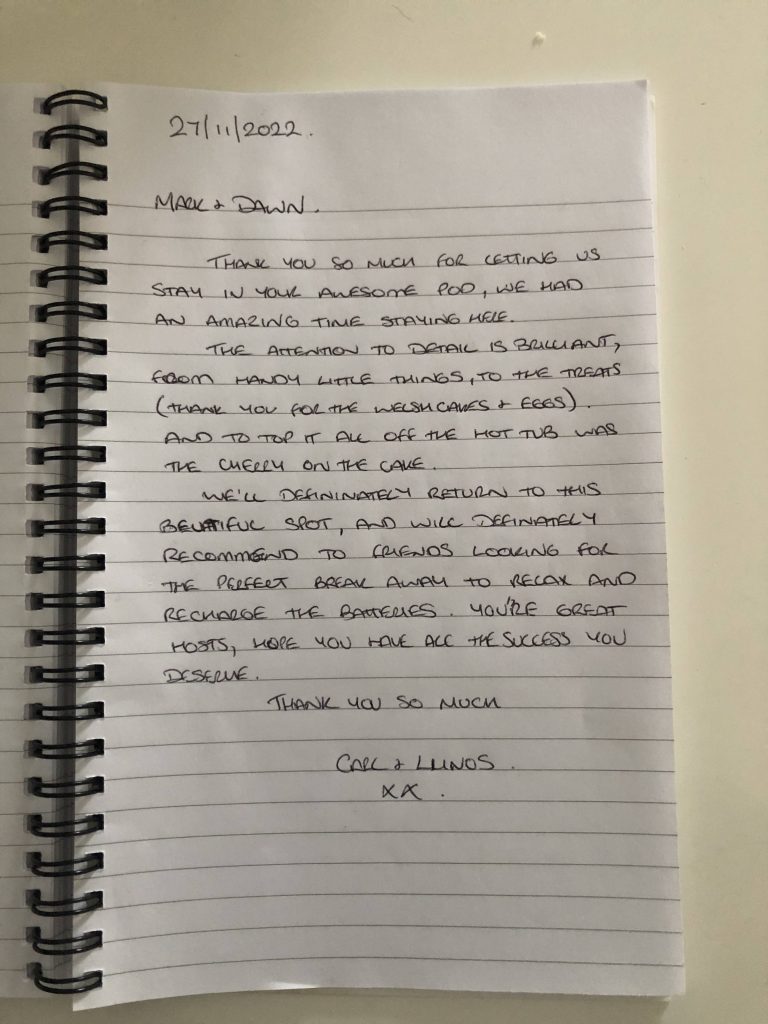 27/11/2022.
MARK & DAWN.
THANK YOU SO MUCH FOR LETTING US
STAY IN YOUR AWESOME POD, WE HAD
AN AMAZING TIME STAYING HERE.
THE ATTENTION TO DETAIL IS BRILLIANT,
FROM HANDY LITTLE THINGS, TO THE TREATS
(THANK YOU FOR THE WELSHCAKES & EGGS).
AND TO TOP IT ALL OFF THE HOT TUB WAS
THE CHERRY ON THE CAKE.
WE'LL DEFININATELY RETURN TO THIS
BEUTIFUL SPOT, AND WILL DEFINIATELY
RECOMMEND TO FRIENDS LOOKING FOR
THE PERFECT BREAK AWAY TO RELAX AND
RECHARGE THE BATTERIES. YOU'RE GREAT
HOSTS, HOPE YOU HAVE ALL THE SUCCESS YOU
DESERVE.
THANK YOU SO MUCH
CARL &
XX.